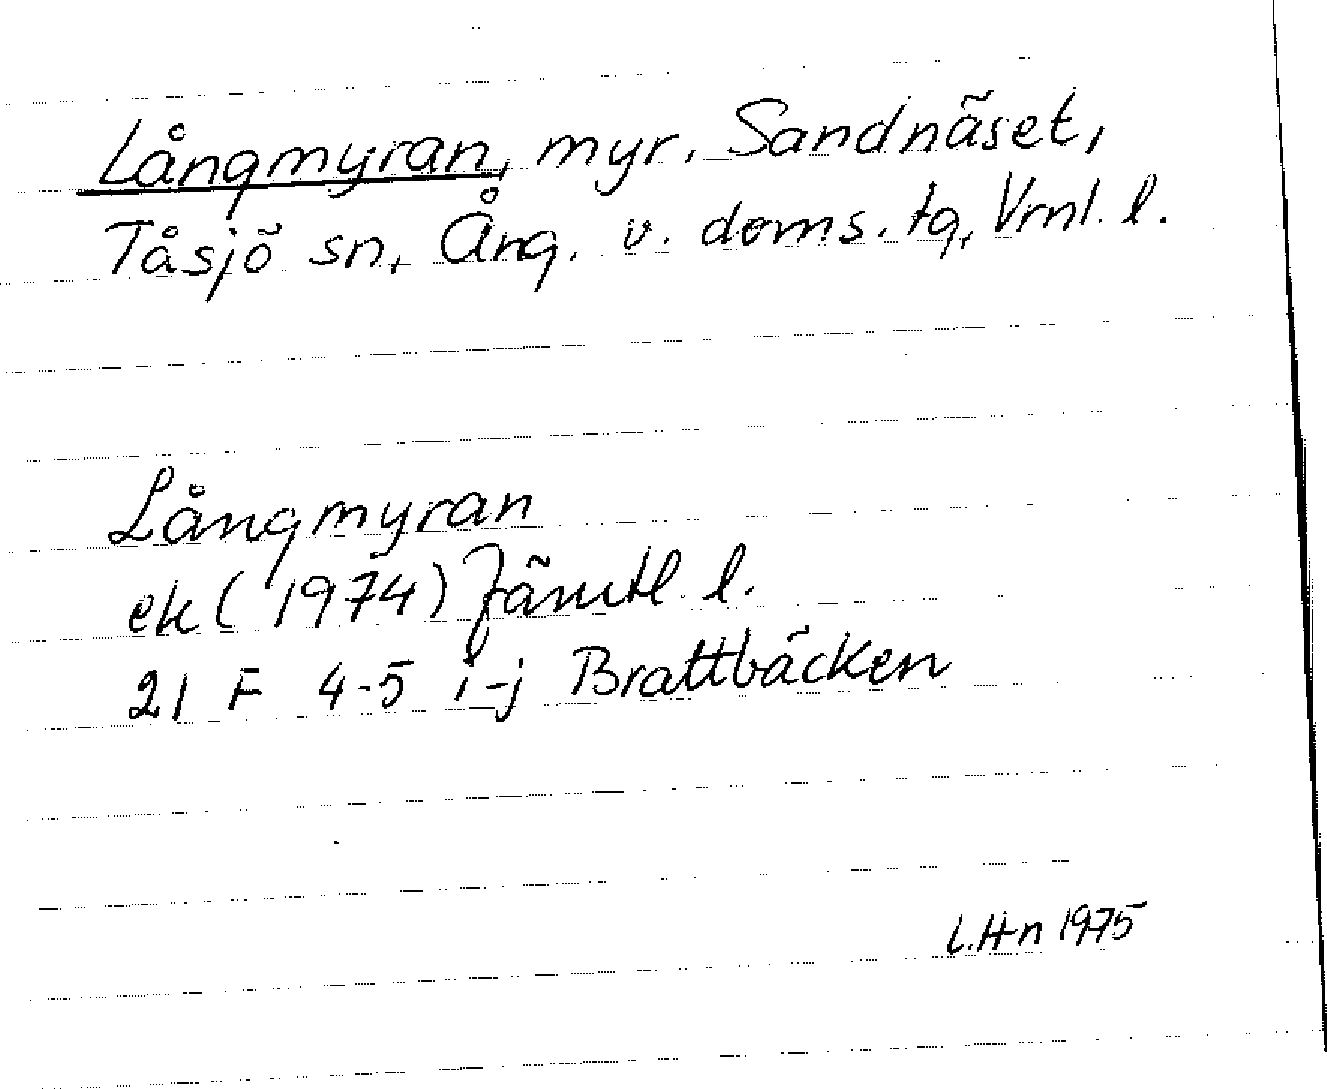 Långmyran, myr, Sandnäset,
Tåsjö sn, Ång. v. doms. tg, Vrnl. l.
Långmyran
ek (1974) Jämtl. l.
21 F 4-5 i-j Brattbäcken
L.H-n 1975